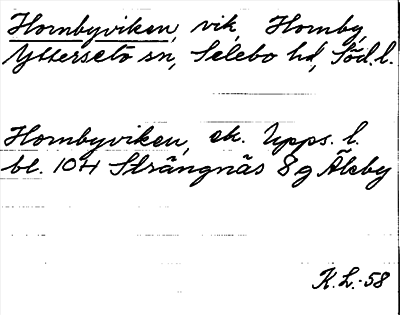 Hornbyviken, vik, Hornby,
Ytterselö sn, Selebo hd, Söd. l.
Hornbyviken, ek. Upps. l.
bl. 104 Strängnäs 8g Åleby
K.L.-58